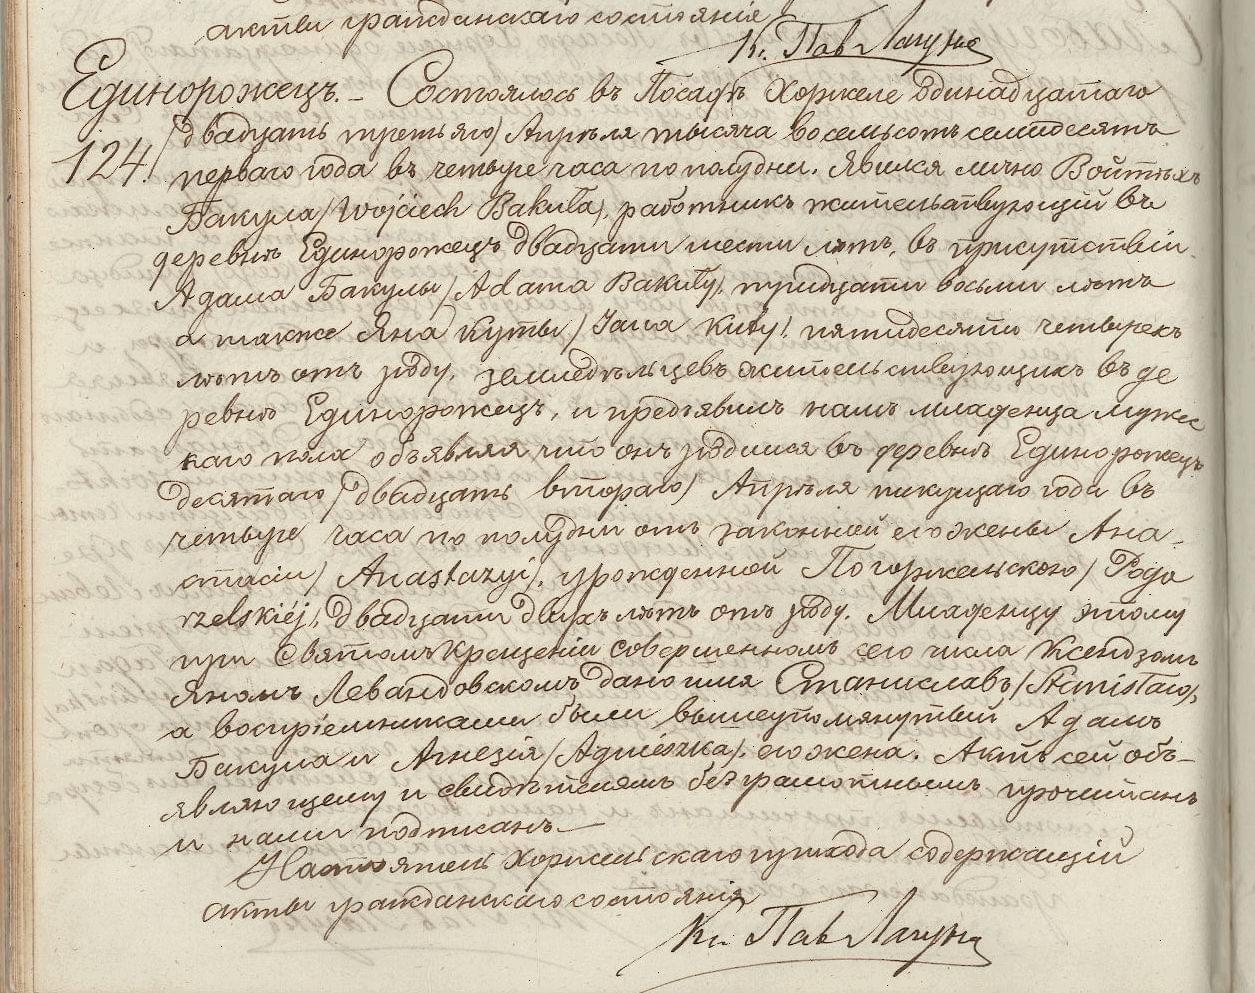 акты гражданскаго состоянія
Кс. Пав Лагуна
Единорожецъ. – Состоялось въ Посадѣ Хоржеле Одинадцатаго
124. /двадцать третьяго/ Апрѣля тысяча восемьсотъ семидесятъ
перваго года въ четыре часа по полудни. Явился лично Войтѣхъ
Бакула /Wojciech Bakuła/, работникъ жительствующій въ
деревнѣ Единорожецъ двадцати шести лѣтъ, въ присутствіи
Адама Бакулы /Adama Bakuły/, тридцати восьми лѣтъ
а также Яна Куты /Jana Kuty/, пятидесяти четырехъ
лѣтъ отъ роду, земледѣльцевъ жительствующихъ въ де
ревнѣ Единорожецъ, и предъявилъ намъ младенца мужес
каго пола объявляя что онъ родился въ деревнѣ Единорожецъ
десятаго /двадцать втораго/ Апрѣля текущаго года въ
четыре часа по полудни отъ законной его жены Ана–
стасіи /Anastazyi/, урожденной Погоржельскою /Pogo
rzelskiéj/, двадцати двухъ лѣтъ отъ роду. Младенцу этому
при Святомъ Крещеніи совершенномъ сего числа Ксендзомъ
Яномъ Левандовскомъ дано имя Станиславъ /Stanisław/,
а воспріемниками были вышеупомянутый Адамъ
Бакула и Агнезія /Agnieszka/, его жена. Актъ сей объ–
являющему и свидѣтелямъ безграмотнымъ прочитанъ
и нами подписанъ –
Настоятель Хоржельскаго прихода содержащій
акты гражданскаго состоянія
Кс. Пав Лагуна